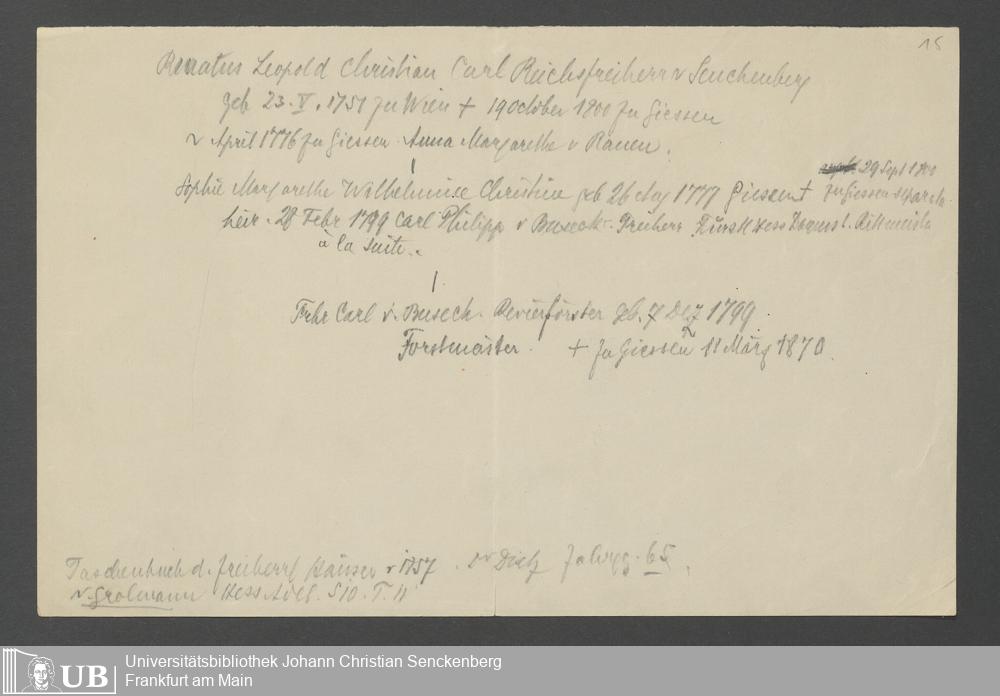 15
Renatus Leopold Christian Carl Reichsfreiherr v Senckenberg
geb 23. V. 1751 zu Wien + 19 October 1800 zu Giessen
v April 1776 zu Giessen Anna Margarethe v Rauen.
29 Sept 1800
Sophie Margarethe Wilhelmine Christine geb 26 Aug 1777 Giessen + zu Giessen separat.
heir. 28 Febr 1799 Carl Philipp v Buseck Freiherr Hess Rittmeister
à la suite.
Frhr Carl v. Buseck. Revierförster geb. 7 Dez 1799
Forstmeister. + zu Giessen 11 März 1870.
Taschenbuch d. freiherrl Häuser v 1857. Dr Dietz 65.
v. Grolmann Hess Adel. S 10. T. 11
UB
Universitätsbibliothek Johann Christian Senckenberg
Frankfurt am Main